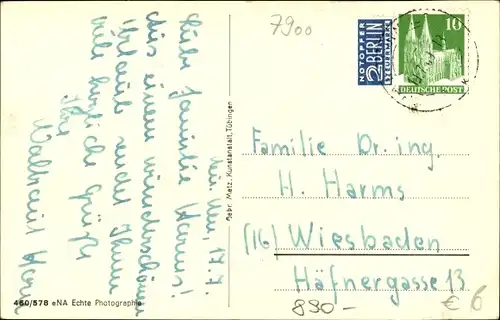 7900
NOTOPFER
2 BERLIN
STEUERMARKE
10
DEUTSCHE POST
Neu Ulm, 17.7.
Liebe Familie Harms!
Aus einem wunderschönen
Urlaub sendet Ihnen
viele herzliche Grüße
Ihre
Waltraut
Gebr. Metz, Kunstanstalt, Tübingen
Familie Dr. ing.
H. Harms
(16) Wiesbaden
Häfnergasse 13
890-
€ 6
460/578 eNA Echte Photographie